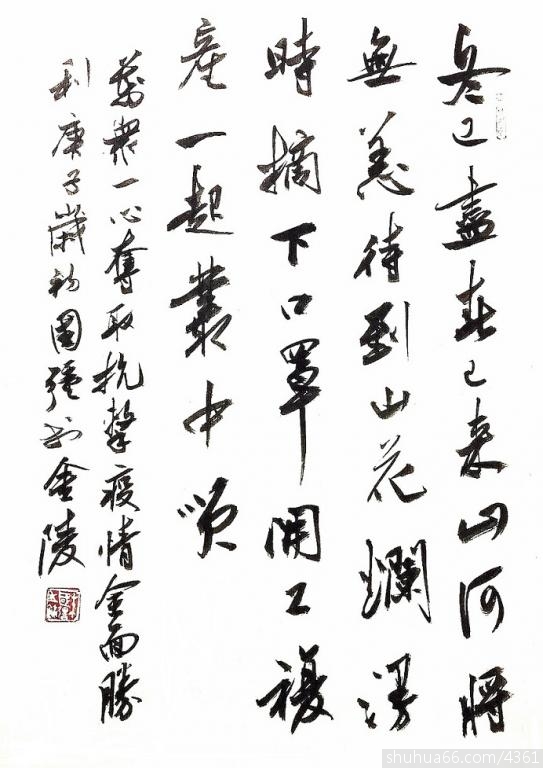 冬已盡春已来山河將
無恙待到山花爛漫
時摘下口罩開工複
産一起叢中咲
萬衆一心奪取抗擊疫情全面勝
利庚子歲初國强书金陵
shuhua66.com/4361